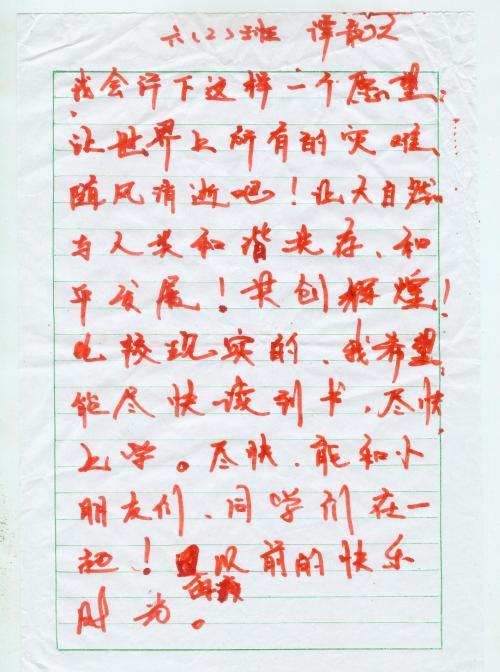 六(2)班 谭韵文
我会许下这样一个愿望:
让世界上所有的灾难、
随风消逝吧!让大自然
与人类和谐共存、和
平发展!共创辉煌!
比较现实的、我希望
能尽快读到书,尽快
上学。尽快、能和小
朋友们、同学们在一
起!以前的快乐
时光。